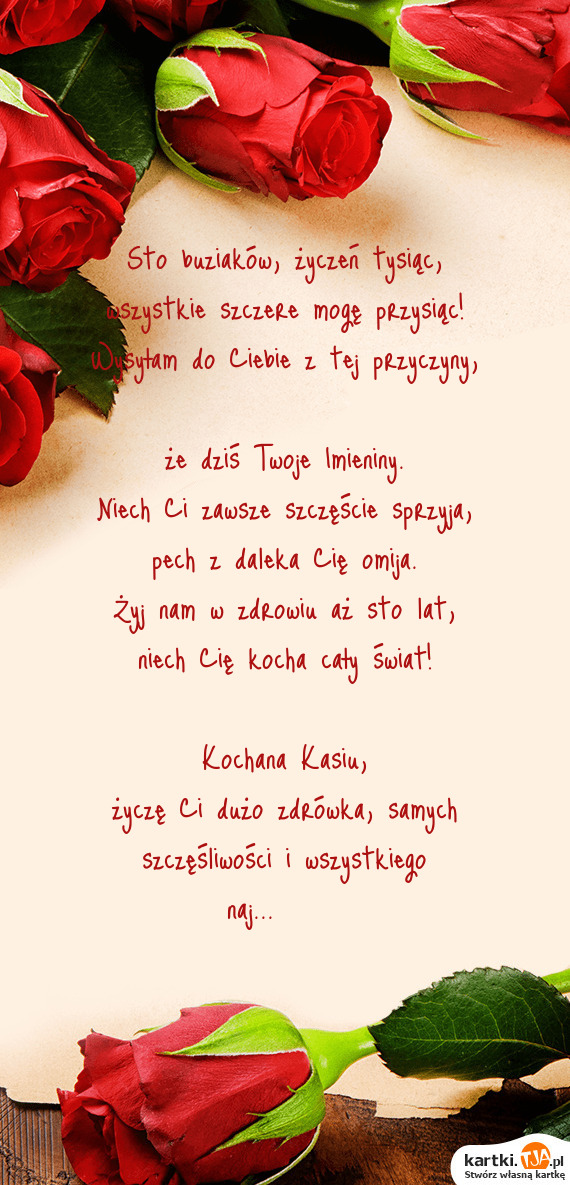 Sto buziaków, życzeń tysiąc,
wszystkie szczere mogę przysiąc!
Wysyłam do Ciebie z tej przyczyny,
że dziś Twoje Imieniny.
Niech Ci zawsze szczęście sprzyja,
pech z daleka Cię omija.
Żyj nam w zdrowiu aż sto lat,
niech Cię kocha cały świat!
Kochana Kasiu,
życzę Ci dużo zdrówka, samych
szczęśliwości i wszystkiego
naj...
kartki.TJA.pl
Stwórz własną kartkę